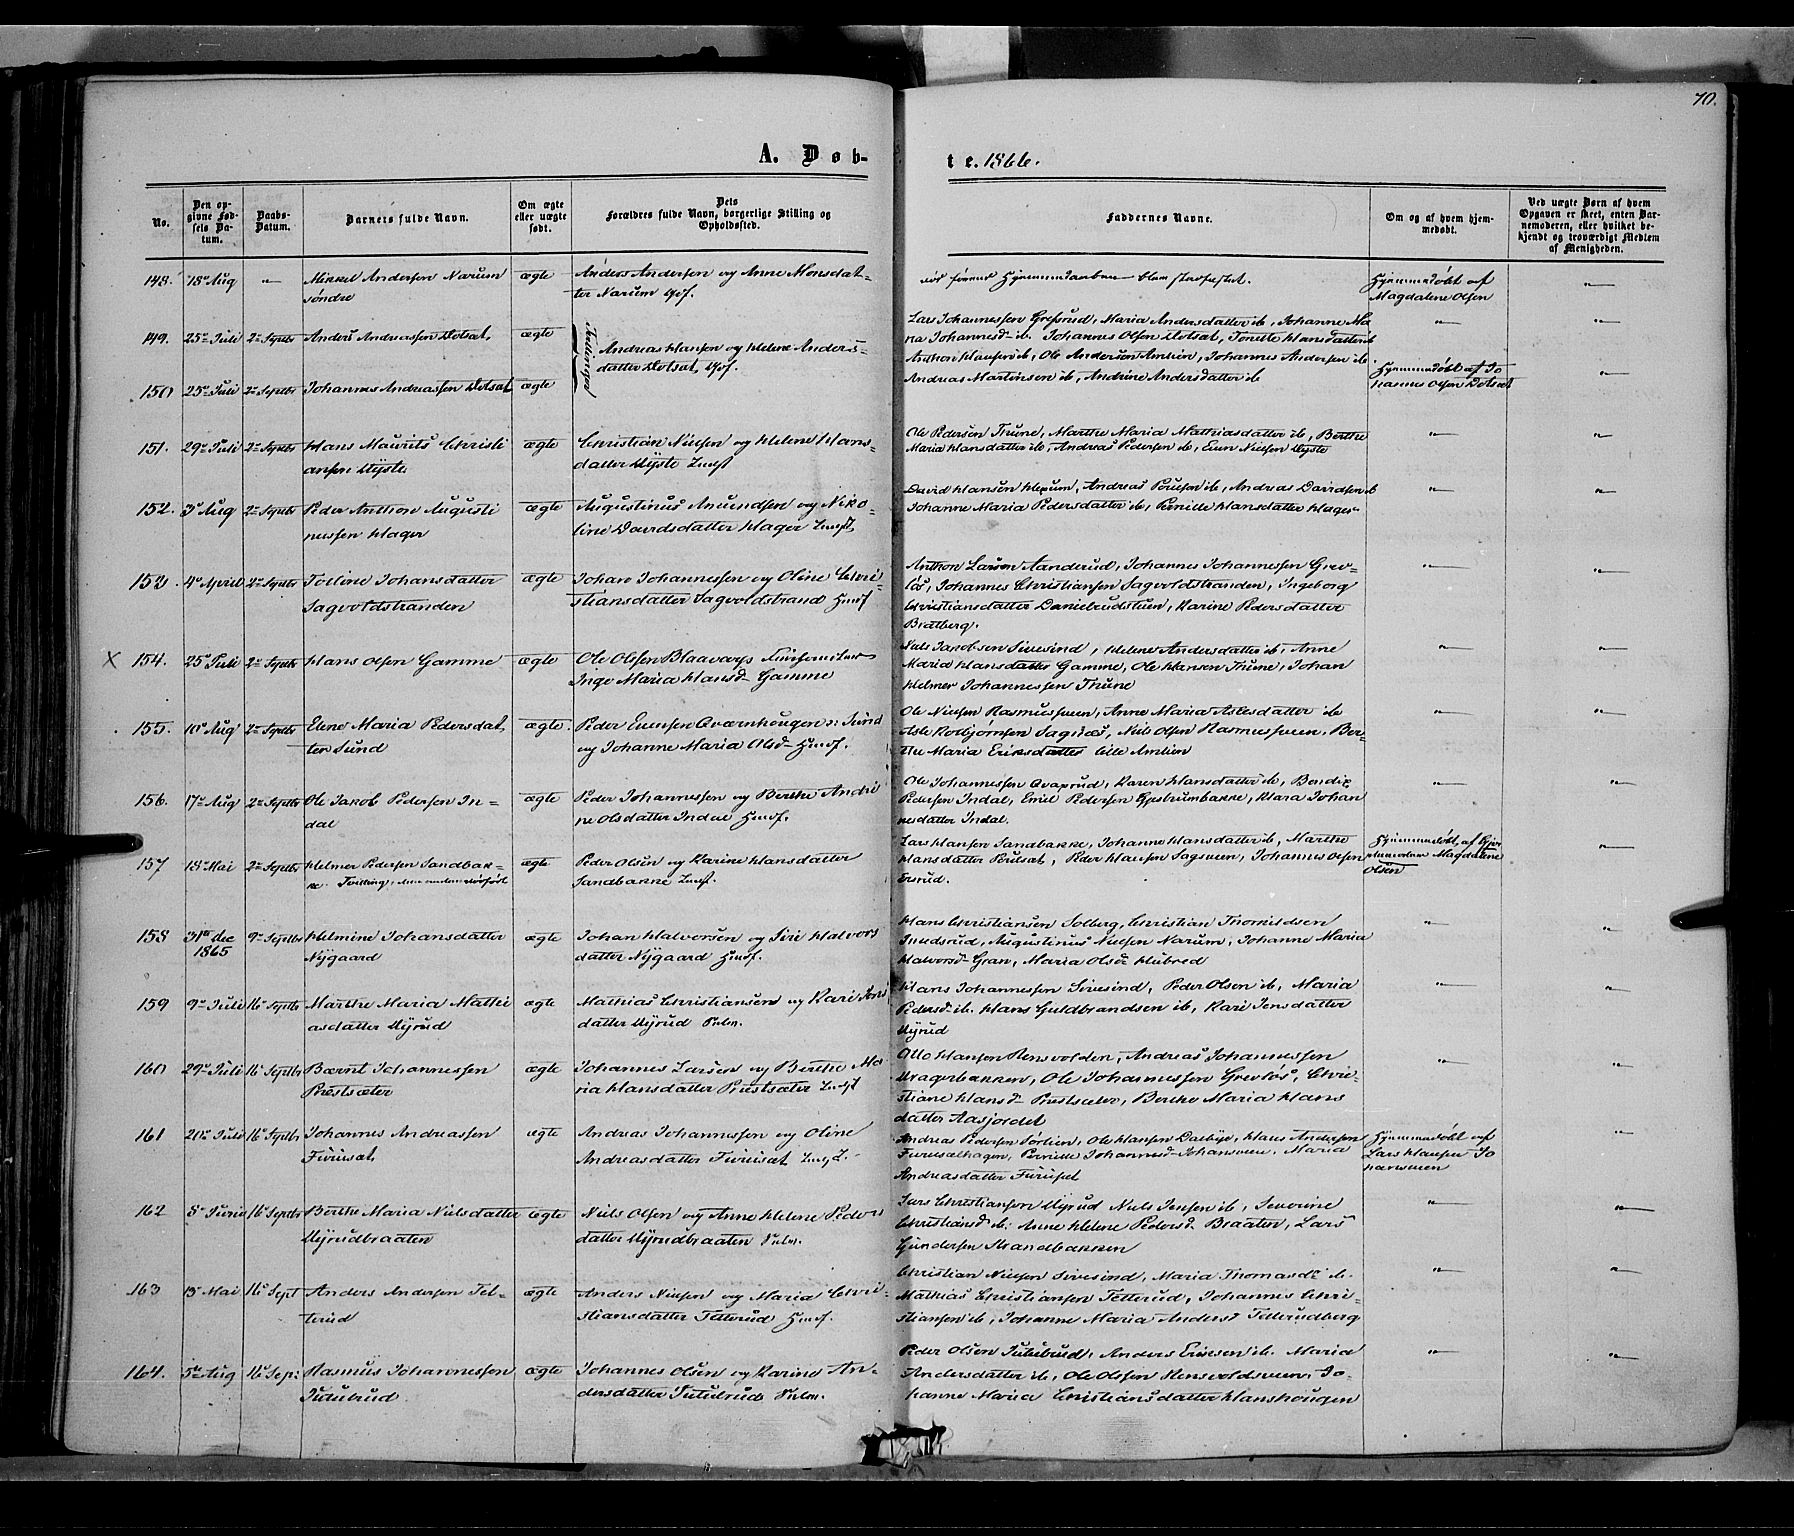 70.
A. Døb-
te. 1866.
No.
Den op-
givne Fød-
sels Da-
tum.
Daabs-
Datum.
Barnets fulde Navn.
Om ægte
eller uægte
født.
Dets
Forældres fulde Navn, borgerlige Stilling og
Opholdssted.
Faddernes Navne.
Om og af hvem hjem-
medøbt.
Ved uægte Børn af hvem
Opgaven er skeet, enten Bar-
nemoderen, eller hvilket be-
kjendt og troværdigt Medlem
af Menigheden.
148. 18de Aug " Mikkel Andersen Narum
søndre
ægte
Anders Andersen og Anne Monsdat-
ter Narum Gbf.
Hjemmedaaben blev stadfæstet.
Hjemmedøbt af
Magdalene Olsen
"
149. 25de Juli 2den Septbr Anders Andreassen Dotset,
ægte
Tvillinger
Andreas Hansen og Helene Anders-
datter Dotset, Gbf.
Lars Johannessen Grefsrud, Maria Andersdatter ib, Johanne Ma
ria Johannesd- ib. Johannes Olsen Dotset, Tonette Hansdatter ib
Anthon Hansen ib, Ole Andersen Amlien, Johannes Andersen ib.
Andreas Martinsen ib, Andrine Andersdatter ib
"
"
150 25de Juli 2den Septbr Johannes Andreassen Dotset
ægte
Hjemmedøbt af Jo
hannes Olsen Dotset
"
151. 29de Juli 2den Septbr Hans Maurits Christi
ansen Myste
ægte
Christian Nielsen og Helene Hans-
datter Myste
Ole Pedersen Thune, Marthe Maria Mathiasdatter ib, Berthe
Maria Hansdatter ib, Andreas Pedersen ib, Even Nielsen Myste
"
"
152. 3die Aug 2den Septbr Peder Anthon Augusti
nussen Hager
ægte
Augustinus Amundsen og Niko-
line Davidsdatter Hager
David Hansen Hexum, Andreas Poulsen ib, Andreas Davidsen ib
Johanne Maria Pedersdatter ib, Pernille Hansdatter Hager
"
"
153. 4de April 2den Septbr Toline Johansdatter
Sagvoldstranden
ægte
Johan Johannessen og Oline Chri-
stiansdatter Sagvoldstrand Husf.
Anthon Larsen Aanderud, Johannes Johannessen Grev-
løs, Johannes Christiansen Sagvoldstranden, Ingeborg
Christiansdatter Danielrudstuen, Karine Pedersdatter
Bratberg.
"
"
X 154. 25de Juli 2den Septbr Hans Olsen Gamme
ægte
Ole Olsen Blaavarp
Inge Maria Hansd- Gamme
Lars Jacobsen Sivesind, Helene Andersdatter ib, Anne
Maria Hansdatter Gamme, Ole Hansen Thune, Johan
Helmer Johannessen Thune
"
"
155. 10de Aug 2den Septbr Elene Maria Pedersdat
ter Lund
ægte.
Peder Evensen Qværnhougen
og Johanne Maria Olsd- Husf.
Ole Nielsen Rasmussveen, Anne Maria Aslesdatter ib
Asle Kolbjørnsen Sagnæs, Niels Olsen Rasmussveen, Ber-
the Maria Eriksdatter lille Amlien
"
"
156. 17de Aug 2den Septbr Ole Jakob Pedersen In-
dal
ægte
Peder Johannessen og Berthe Andri
ne Olsdatter Indal Husf.
Ole Johannessen Qvaprud, Karen Hansdatter ib, Bendik
Pedersen Indal, Emil Pedersen Gjestrumbakke, Klara Johan
nesdatter Indal.
"
"
157 18de Mai 2den Septbr Helmer Pedersen Sandbak-
ke. Tvilling, den anden dødfødt
ægte
Peder Olsen og Karine Hansdatter
Sandbakke
Lars Hansen Sandbakke, Johanne Hansdatter ib, Marthe
Hansdatter Prestsæt, Peder Hansen Sagsveen, Johannes Olsen
Hjemmedøbt, af Gjor
demoder Magdalene
Olsen
"
158 31te dec
1865
9de Septbr Helmine Johansdatter
Nygaard
ægte
Johan Halvorsen og Siri Halvors
datter Nygaard Husf.
Hans Christiansen Solberg, Christian Thorkildsen
Sundsrud, Augustinus Nielsen Narum, Johanne Maria
Halvorsd- Gran, Maria Olsd- Klubred
"
"
159 9de Juli 16de Septbr Marthe Maria Mathi
asdatter Myrud
ægte
Mathias Christiansen og Kari Jens
datter Myrud
Hans Johannessen Sivesind, Peder Olsen ib, Maria
Pedersd- ib. Hans Guldbrandsen ib, Kari Jensdatter
Myrud
"
"
160 29de Juli 16de Septbr Bernt Johannessen
Prestsæter
ægte
Johannes Larsen og Berthe Ma
ria Hansdatter Prestsæter
Otto Hansen Rensvolden, Andreas Johannessen
Kragerbakken, Ole Johannessen Grevløs, Chri-
stiane Hansd- Prestsæter, Berthe Maria Hans
datter Aasjordet
"
"
161 Juli 16de Septbr Johannes Andreassen
Furuset,
ægte
Andreas Johannessen og Oline
Andreasdatter Furuset
Andreas Pedersen Sørlien, Ole Hansen Dalbye, Hans Andersen
Furusethagen, Pernille Johannesd- Johansveen, Maria
Andreasdatter Furuset
Hjemmedøbt af
Lars Hansen Jo
hansveen
"
162 8de Junii 16de Septbr Berthe Maria Nielsdatter
Myrudbraaten
ægte
Niels Olsen og Anne Helene Peders
datter Myrudbraaten
Lars Christiansen Myrud Niels Jensen ib, Severine
Christiansd- ib. Anne Helene Pedersd. Braaten, Lars
Gundersen Strandbakken
"
"
163 13de Mai 16de Sept Anders Andersen Tet-
terud
ægte
Anders Nielsen og Maria Chri-
stiansdatter Tetterud Husf.
Christian Nielsen Sivesind, Maria Thomasd- ib.
Mathias Christiansen Tetterud, Johannes Chri-
stiansen ib, Johanne Maria Andersd- Tetterudberg
"
"
164. 5te Aug 16de Sep: Rasmus Johannessen
Tutulrud
ægte
Johannes Olsen og Karine An-
dersdatter Tutulrud
Peder Olsen Tutulrud, Anders Eriksen ib. Maria
Andersdatter ib, Ole Olsen Rensvoldsveen, Jo-
hanne Maria Christiansdatter Hanshougen
"
"